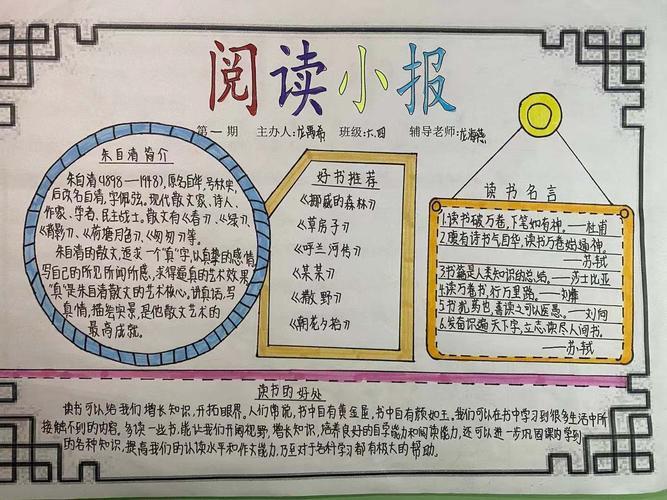 阅读小报
第一期 主办人:龙禹希 班级:六.四 辅导老师:龙海燕
朱自清简介
朱自清(1898—1948),原名自华,号秋实,
后改名自清,字佩弦。现代散文家、诗人、
作家、学者、民主战士。散文有《春》、《绿》、
《背影》、《荷塘月色》、《匆匆》等。
朱自清的散文,追求一个"真"字,以真挚的感情
写自己的所见所闻所感,求得逼真的艺术效果。
"真"是朱自清散文的艺术核心。讲真话,写
真情,描绘实景,是他散文艺术的
最高成就。
好书推荐
《挪威的森林》
《草房子》
《呼兰河传》
《某某》
《撒野》
《朝花夕拾》
读书名言
1.读书破万卷,下笔如有神。——杜甫
2.腹有诗书气自华,读书万卷始通神。
——苏轼
3.书籍是人类知识的总结。——莎士比亚
4.读万卷书,行万里路。——刘彝
5.书犹药也,善读之可以医愚。——刘向
6.发奋识遍天下字,立志读尽人间书。
——苏轼
读书的好处
读书可以给我们增长知识,开拓眼界。人们常说,书中自有黄金屋,书中自有颜如玉。我们可以在书中学习到很多生活中所
接触不到的内容,多读一些书,能让我们开阔视野,增长知识,培养良好的自学能和阅读能力,还可以进一步巩固课内学到
的各种知识,提高我们的认读水平和作文能力,乃至对于各种学习都有极大的帮助。